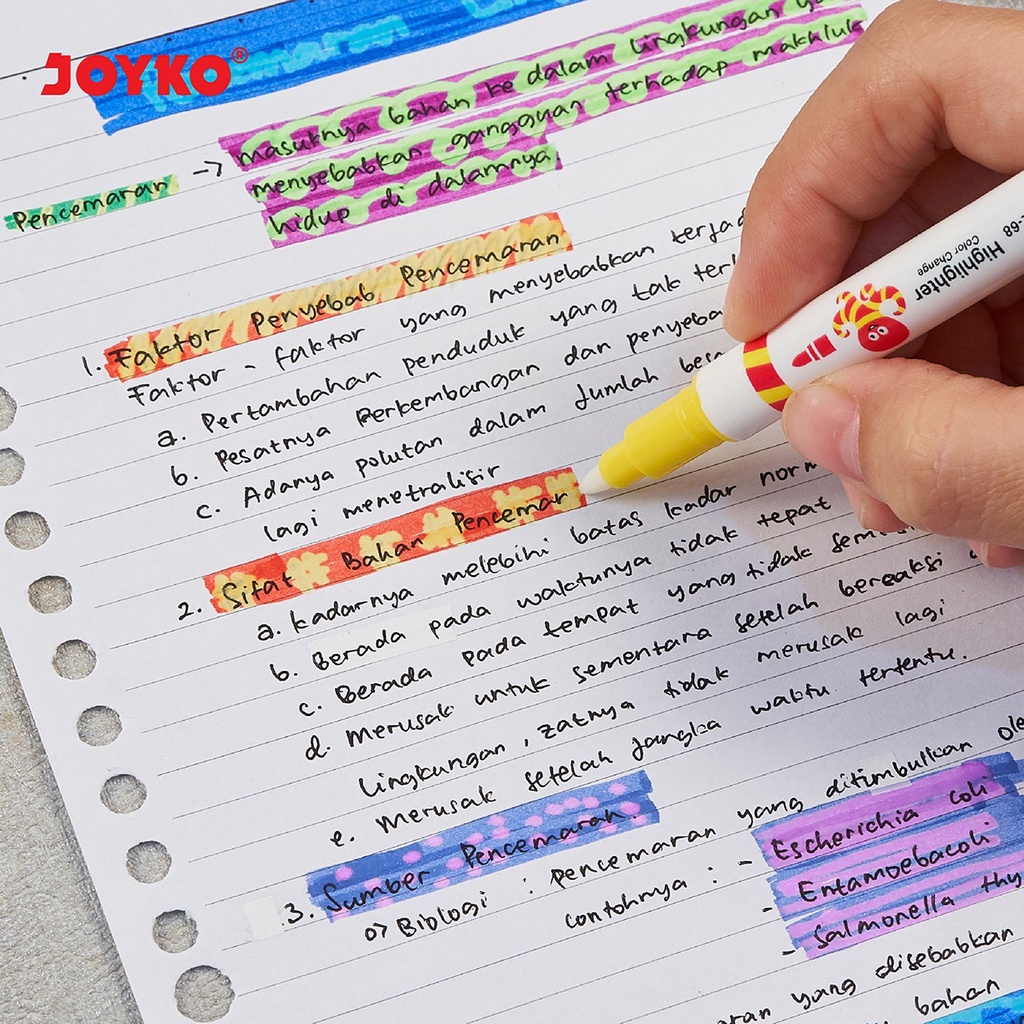 JOYKO®
masuknya bahan ke dalam lingkungan
Pencemaran -> menyebabkan gangguan terhadap makhluk
hidup di dalamnya
1. Faktor Penyebab Pencemaran
Faktor - faktor yang menyebabkan terjad
a. Pertambahan penduduk yang tak
b. Pesatnya Perkembangan dan penyeba
c. Adanya polutan dalam Jumlah besa
lagi menetralisir
2. Sifat Bahan Pencemar
a. kadarnya melebihi batas kadar norm
b. Berada pada waktunya tidak tepat
c. Berada pada tempat yang tidak
d. Merusak untuk sementara setelah bereaksi
Lingkungan, zatnya tidak merusak lagi
e. Merusak setelah jangka waktu tertentu.
3. Sumber Pencemaran.
o> Biologi : pencemaran yang ditimbulkan ole
contohnya : - Escherichia coli
- Entamoebacoli
- Salmonella thy
aran yang disebabkan
bahan
-68 Highlighter
Color Change